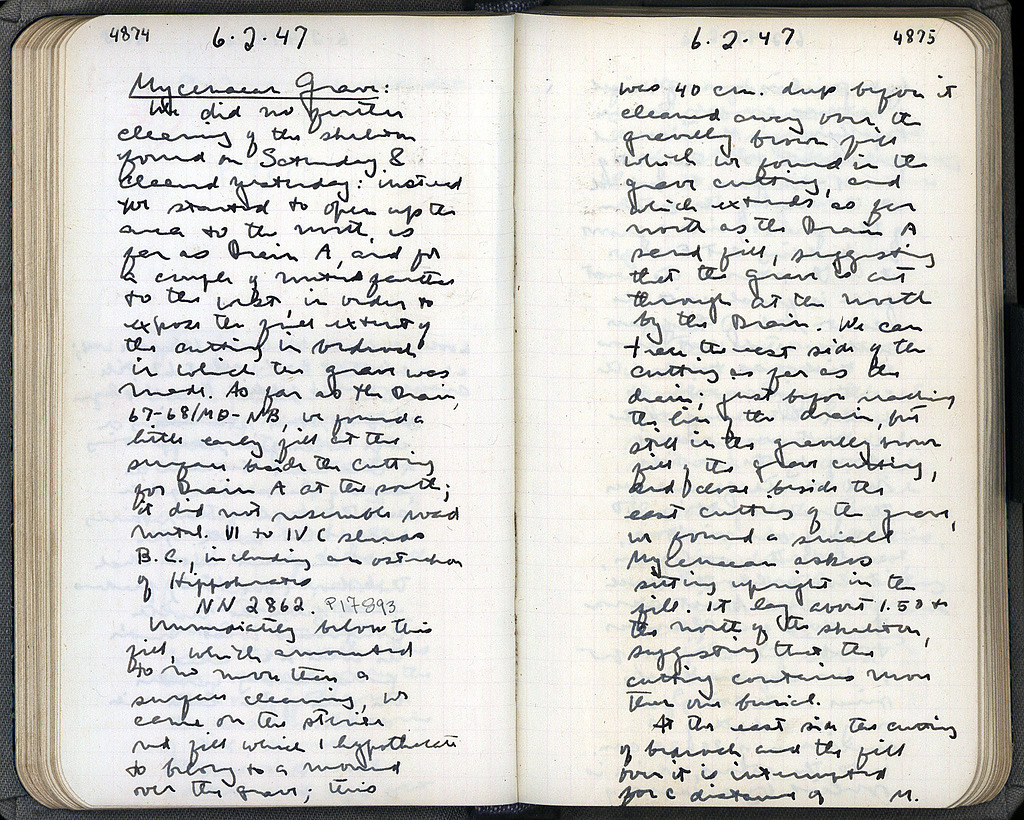 4874
6.2.47
Mycenaean Grave:
We did no further
clearing of the skeleton
found on Saturday &
cleaned yesterday: instead
we started to open up the
area to the north, as
far as Drain A, and for
a couple of metres farther
to the west, in order to
expose the full extent of
the cutting in bedrock
in which the grave was
made. As far as the Drain,
67-68/MD-NB, we found a
little early fill at the
surface beside the cutting
for Drain A at the south;
it did not resemble road
metal. VI to IV C sherds
B.C., including an ostrakon
of Hippokrates
NN 2862. P17893
Immediately below this
fill, which amounted
to no more than a
surface cleaning, we
came on the sterile
red fill which I hypothecate
to belong to a mound
over the grave; this
6.2.47
4875
was 40 cm. deep before it
cleared away over the
gravelly brown fill
which we found in the
grave cutting, and
which extends as far
north as the Drain A
sand fill, suggesting
that the grave is cut
through at the north
by the Drain. We can
trace the east side of the
cutting as far as the
drain; just before reaching
the line of the drain, but
still in the gravelly brown
fill of the grave cutting,
and close beside the
east cutting of the grave,
we found a small
Mycenaean askos
sitting upright in the
fill. It lay about 1.50 to
the north of the skeleton,
suggesting that the
cutting contains more
than one burial.
At the east side the cutting
of bedrock and the fill
over it is interrupted
for a distance of M.